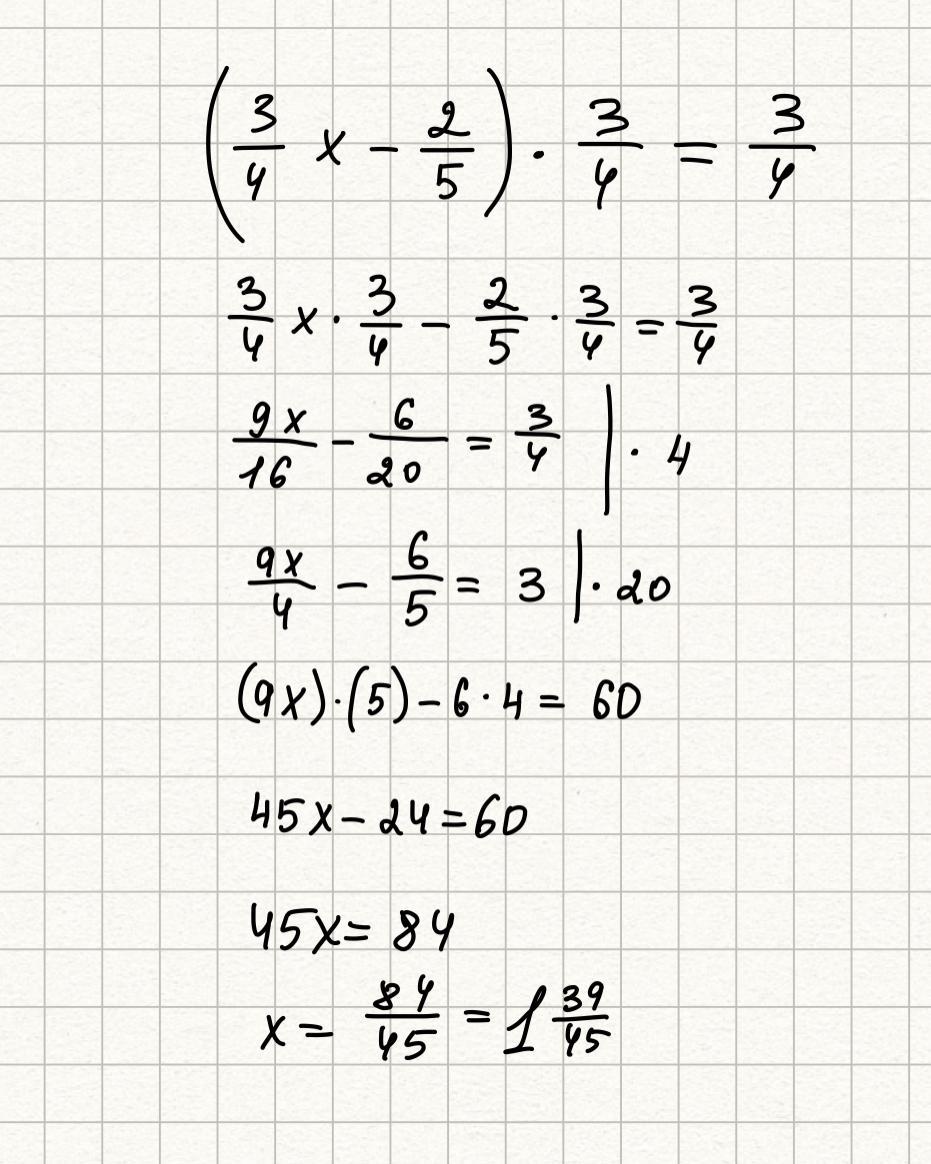 (3/4 x - 2/5) · 3/4 = 3/4
3/4 x · 3/4 - 2/5 · 3/4 = 3/4
9x/16 - 6/20 = 3/4 | · 4
9x/4 - 6/5 = 3 | · 20
(9x) · (5) - 6 · 4 = 60
45x - 24 = 60
45x = 84
x = 84/45 = 1 39/45